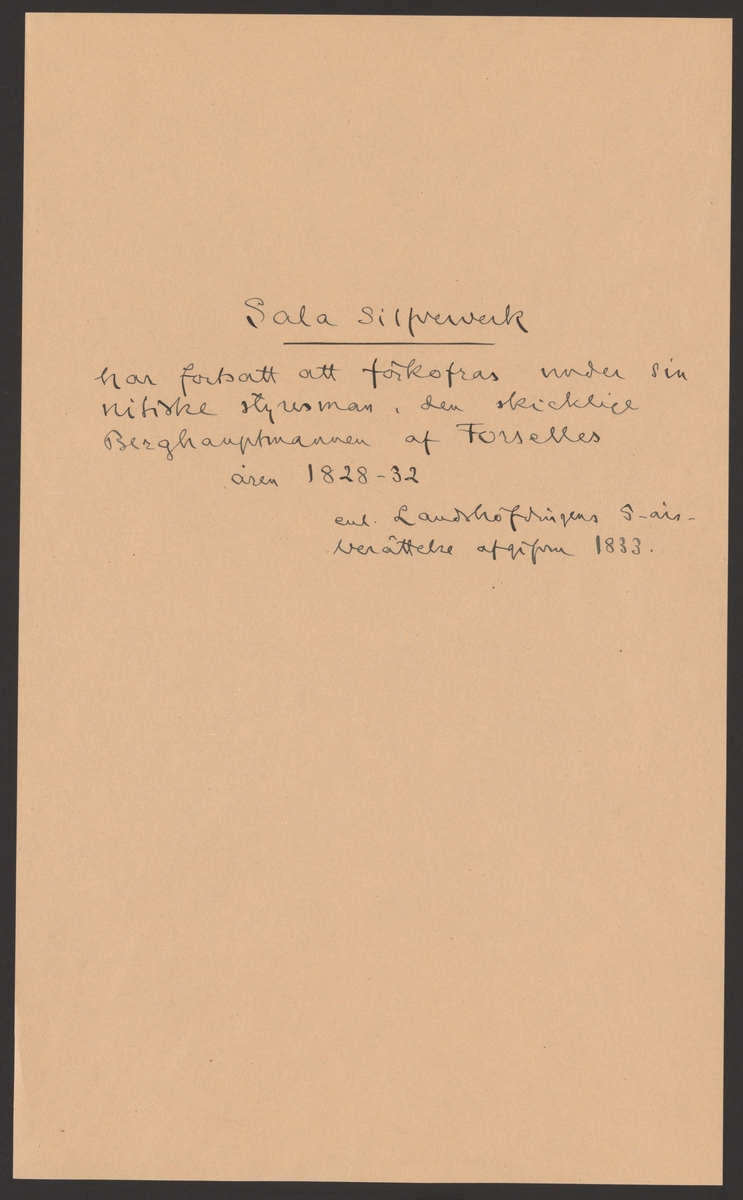 Sala Silfververk
har fortsatt att förkofras under sin
nitiske styresman, den skicklige
Berghauptmannen af Forselles
åren 1828-32
enl. Landshöfdingens 5-års-
berättelse afgifven 1833.